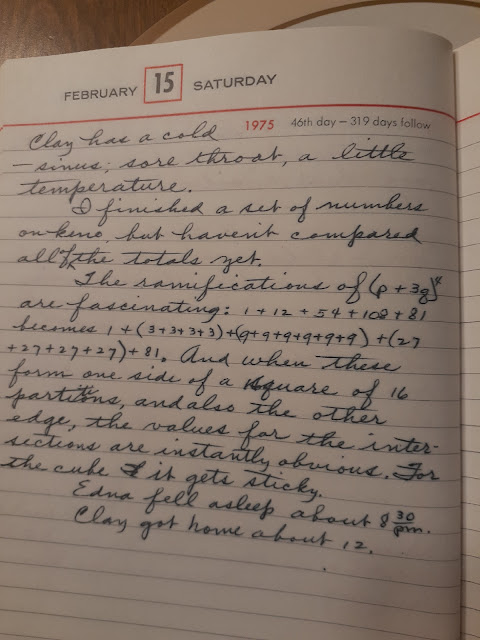 FEBRUARY 15 SATURDAY
1975 46th day – 319 days follow
Clay has a cold
– sinus, sore throat, a little
temperature.
I finished a set of numbers
on keno but haven't compared
all of the totals yet.
The ramifications of (p + 3q)⁴
are fascinating: 1 + 12 + 54 + 108 + 81
becomes 1 + (3+3+3+3)+(9+9+9+9+9+9) + (27
+27+27+27)+81. And when these
form one side of a square of 16
partitions, and also the other
edge, the values for the inter-
sections are instantly obvious. For
the cube it gets sticky.
Edna fell asleep about 8 30 pm.
Clay got home about 12.